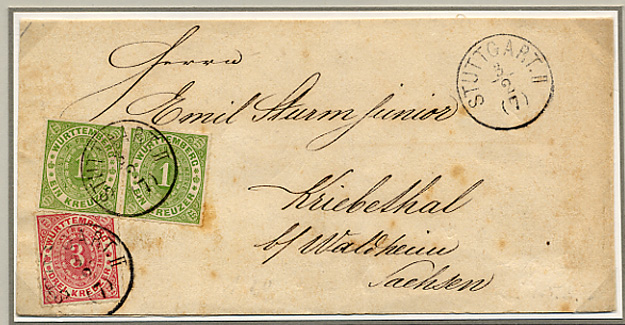 Herrn
Emil Sturm junior
Kriebethal
b/ Waldheim
Sachsen
STUTTGART. II
WÜRTTEMBERG
1
EIN KREUZER
WÜRTTEMBERG
1
EIN KREUZER
WÜRTTEMBERG
3
DREI KREUZER